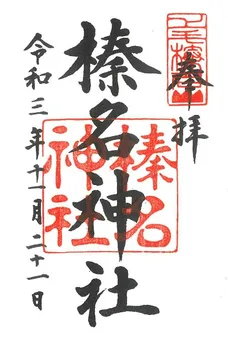 奉拝
榛名神社
榛名神社
令和三年十一月二十一日